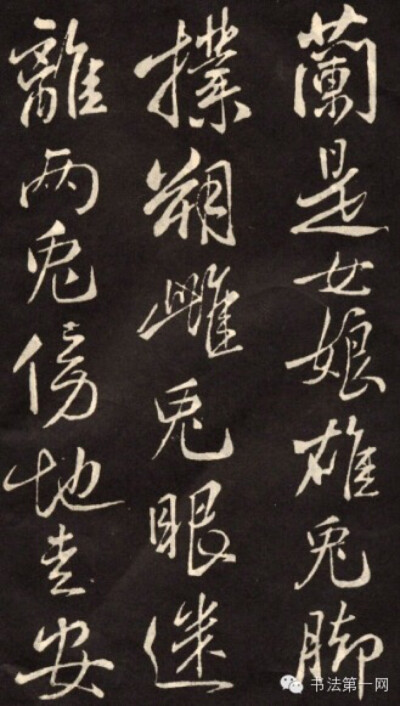 蘭是女娘雄兔脚
撲朔雌兔眼迷
離两兔傍地走安
书法第一网